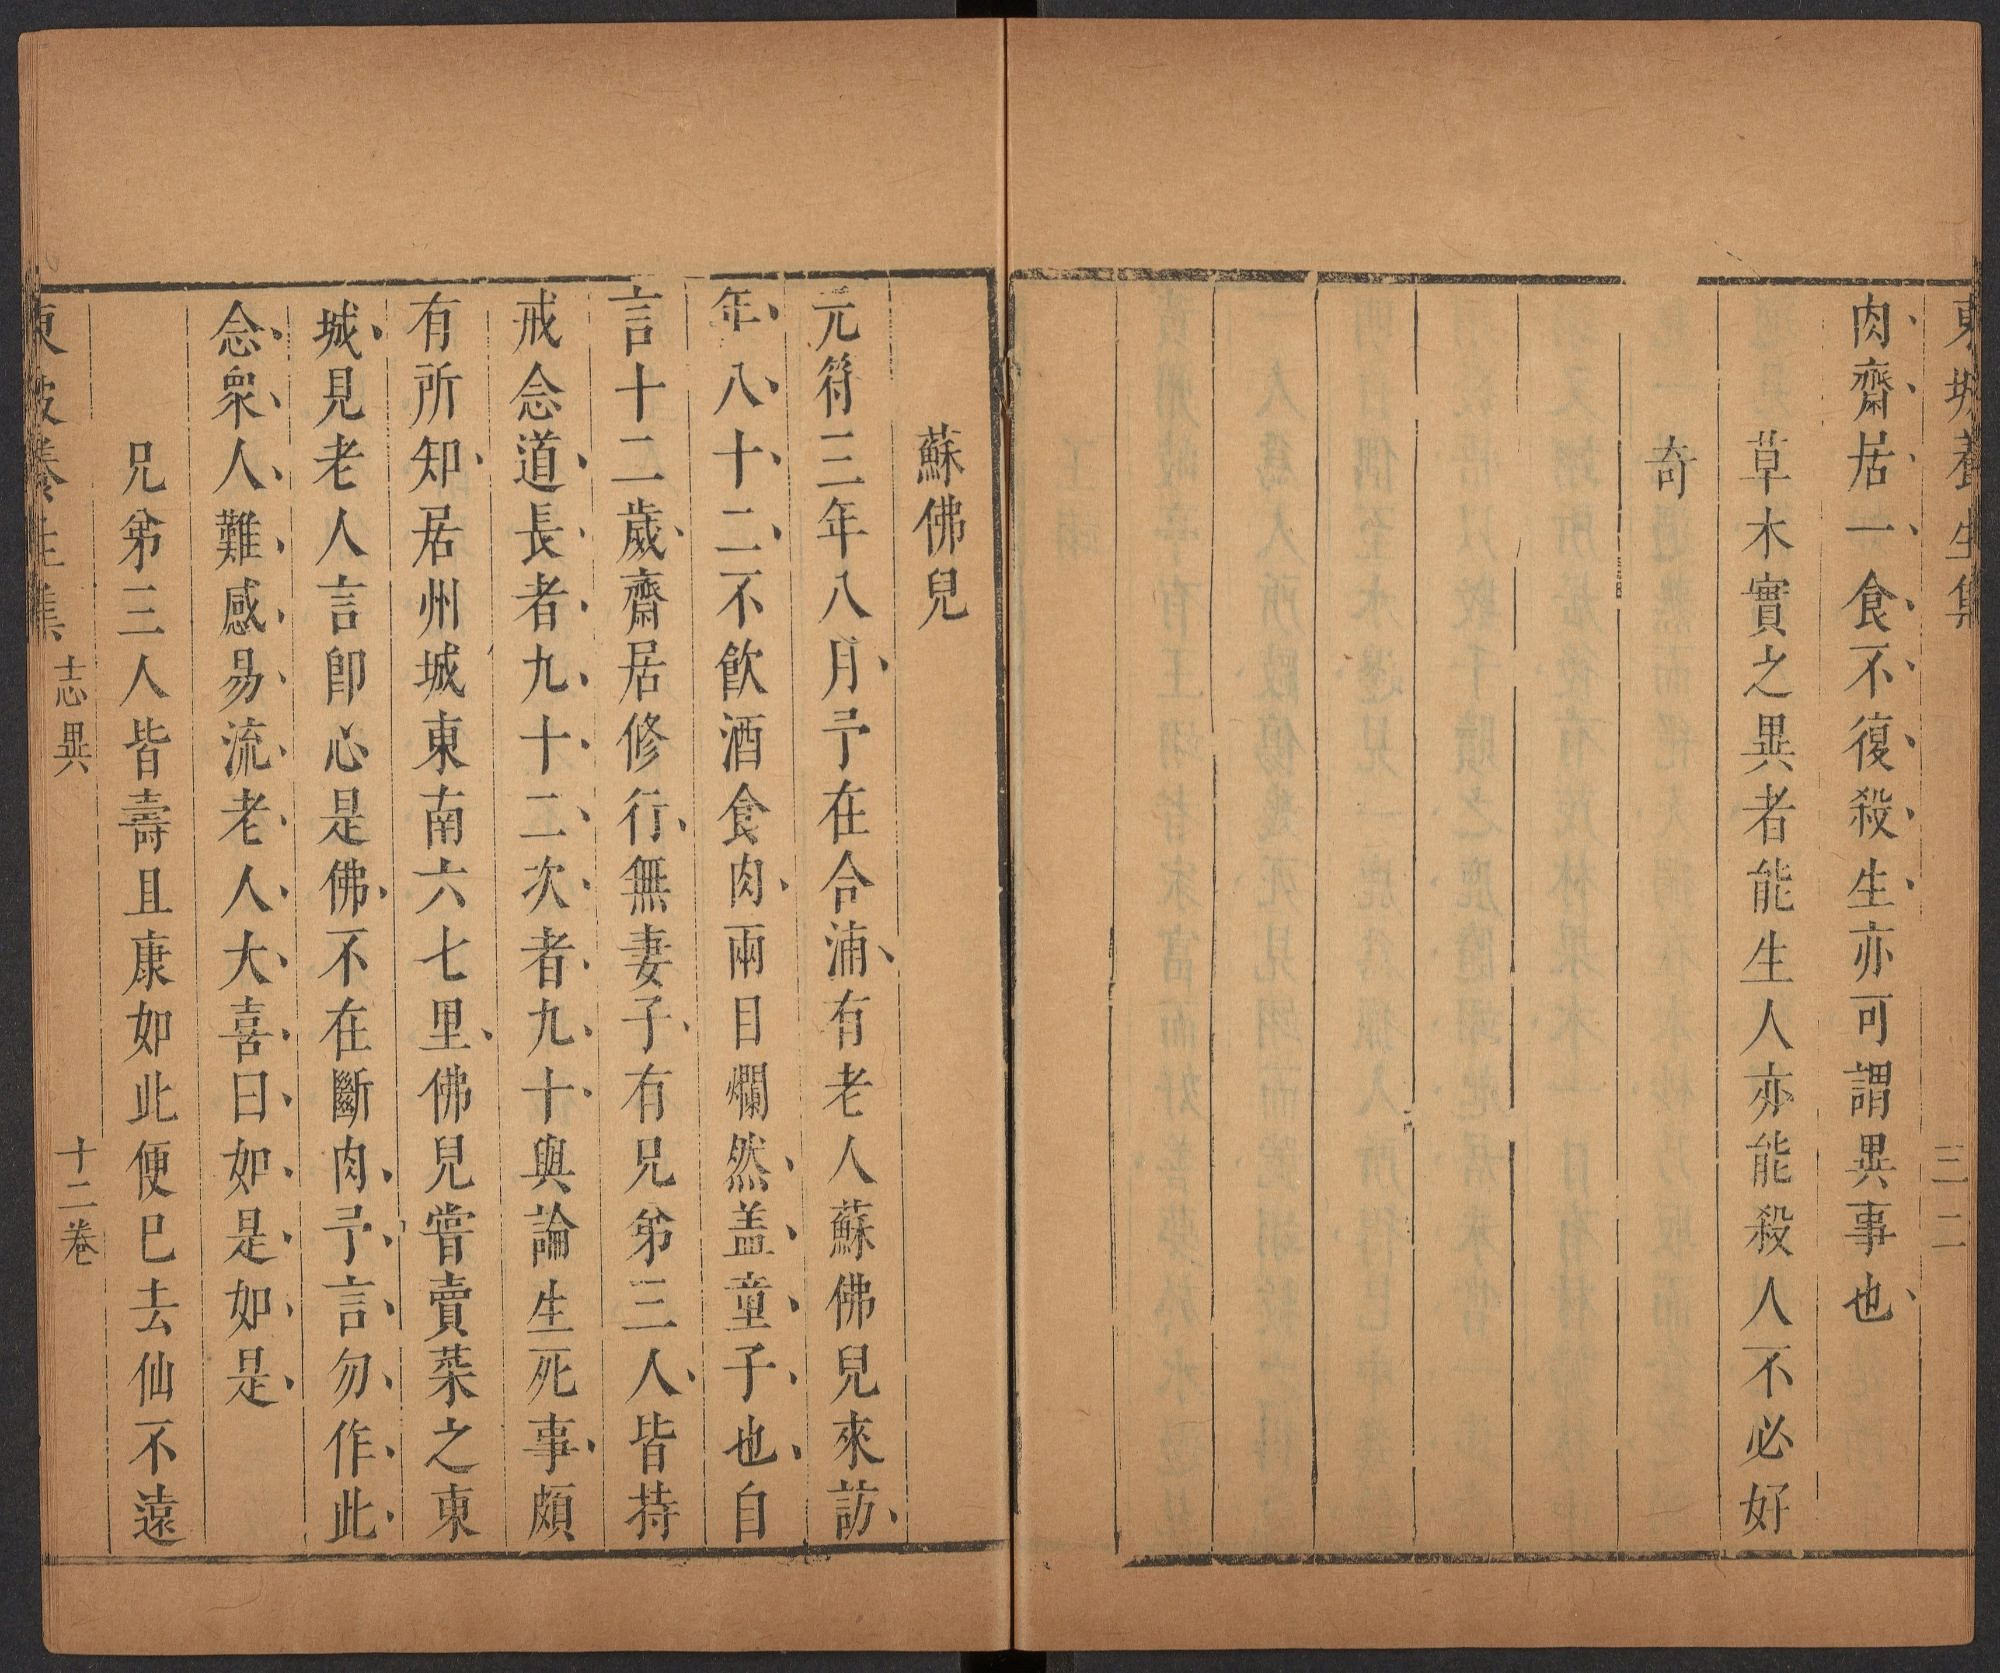 東坡養生集
三二
肉齋居一食不復殺生亦可謂異事也
草木實之異者能生人亦能殺人不必好
奇
蘇佛兒
元符三年八月予在合浦有老人蘇佛兒來訪
年八十二不飲酒食肉兩目爛然盖童子也自
言十二歲齋居修行無妻子有兄弟三人皆持
戒念道長者九十二次者九十與論生死事頗
有所知居州城東南六七里佛兒嘗賣菜之東
城見老人言即心是佛不在斷肉予言勿作此
念衆人難感易流老人大喜曰如是如是
兄弟三人皆壽且康如此便已去仙不遠
東坡養生集
志異
十二卷